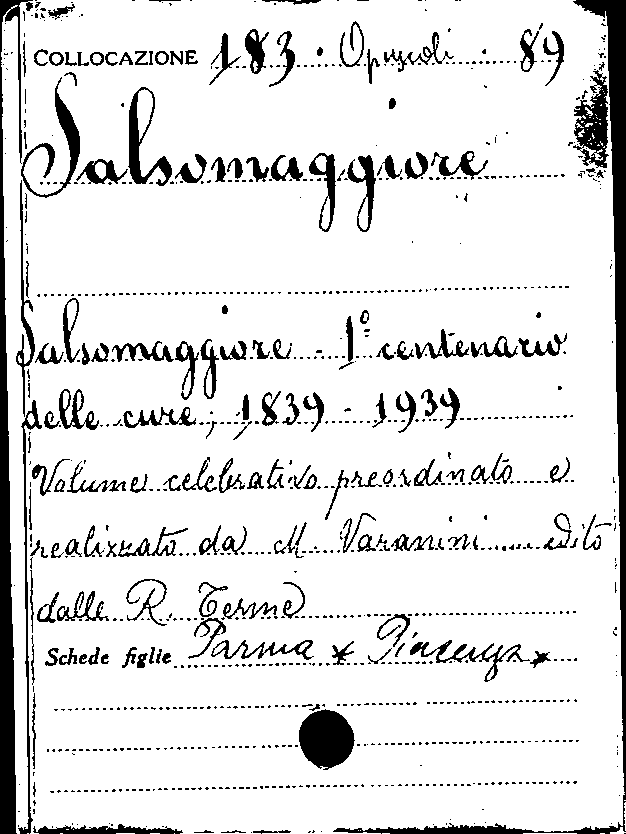 COLLOCAZIONE 183 · Opuscoli · 89
Salsomaggiore
Salsomaggiore - 1º centenario
delle cure; 1839 - 1939
Volume celebrativo preordinato e
realizzato da M. Varanini ..... edito
dalle R. Terme
Schede figlie Parma x Piacenza x